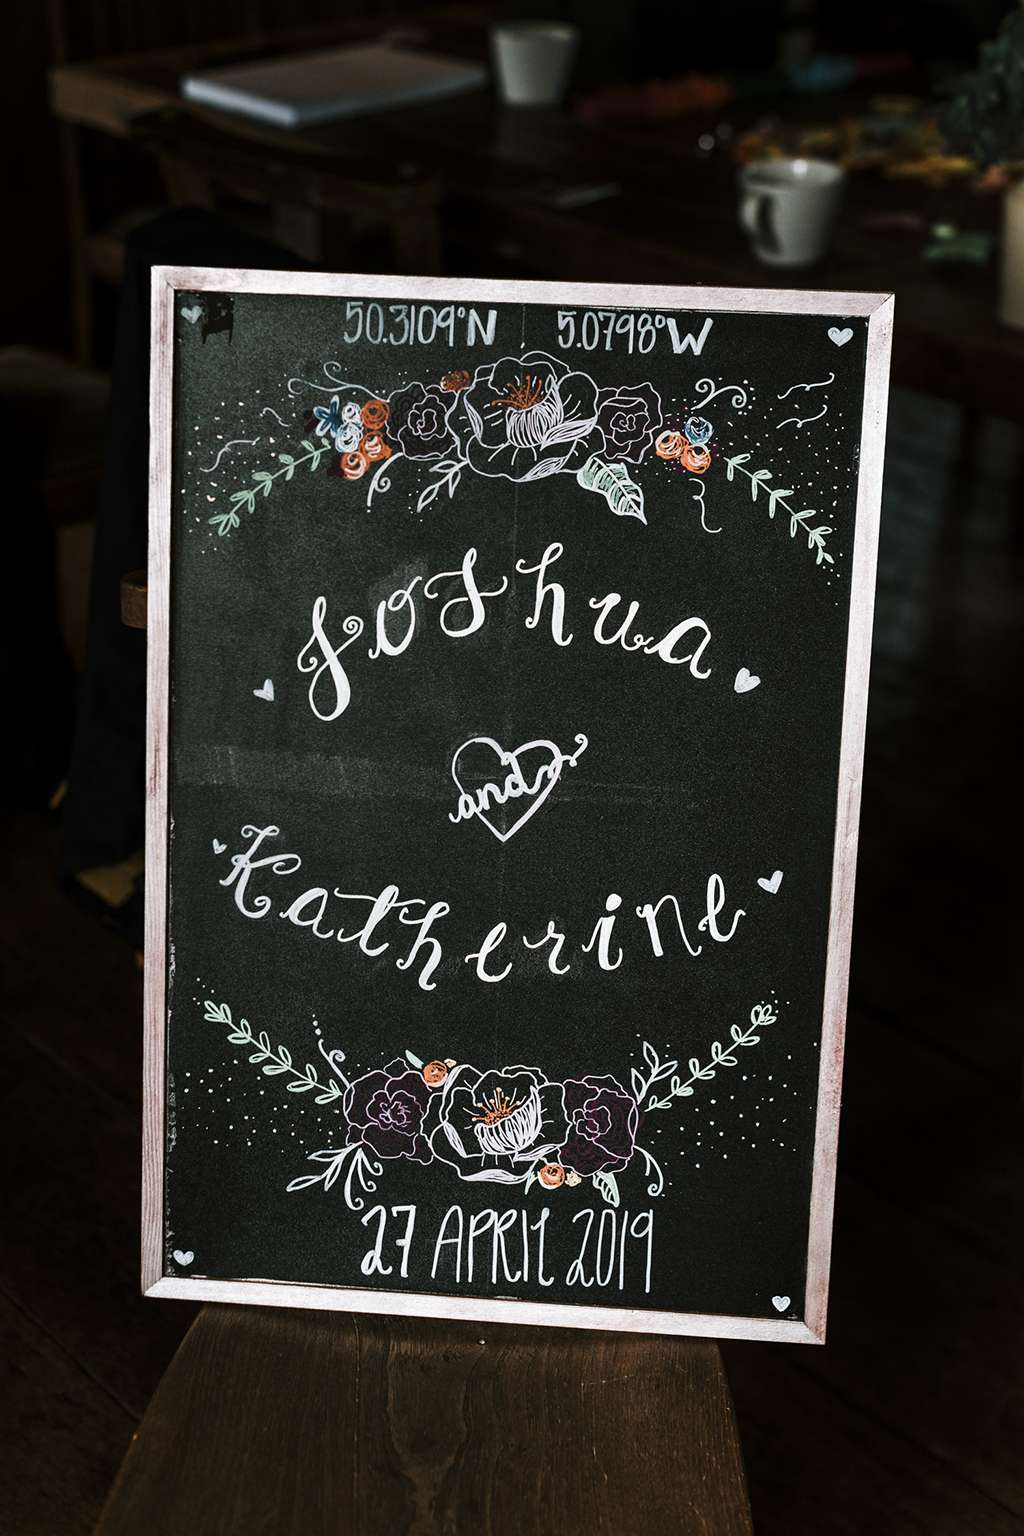 50.3109°N 5.0798°W
Joshua
and
Katherine
27 APRIL 2019